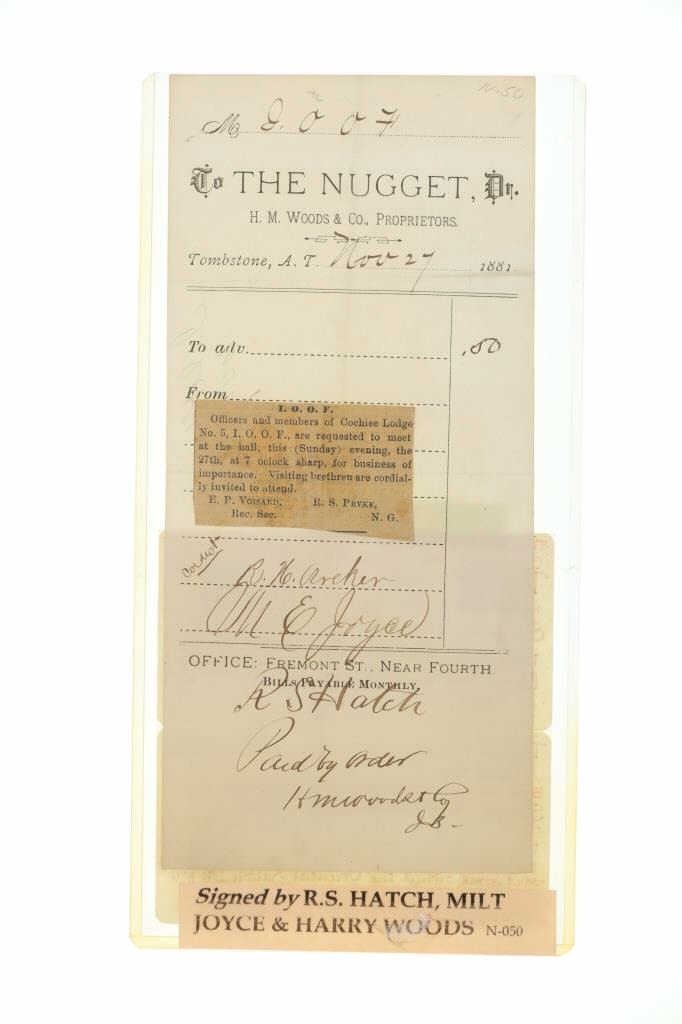 N-50
M I. O O F
To THE NUGGET, Dr.
H. M. WOODS & CO., PROPRIETORS.
Tombstone, A. T. Nov 27 1881
To adv. .50
From
I. O. O. F.
Officers and members of Cochise Lodge
No. 5, I. O. O. F., are requested to meet
at the hall, this (Sunday) evening, the
27th, at 7 oclock sharp, for business of
importance. Visiting brethren are cordial-
ly invited to attend.
E. P. VOISARD, R. S. PRYKE,
Rec. Sec. N. G.
Correct
B. H. Archer
M E Joyce
OFFICE: FREMONT ST., NEAR FOURTH
BILLS PAYABLE MONTHLY.
R S Hatch
Paid by order
H M Woods & Co
Signed by R.S. HATCH, MILT
JOYCE & HARRY WOODS N-050